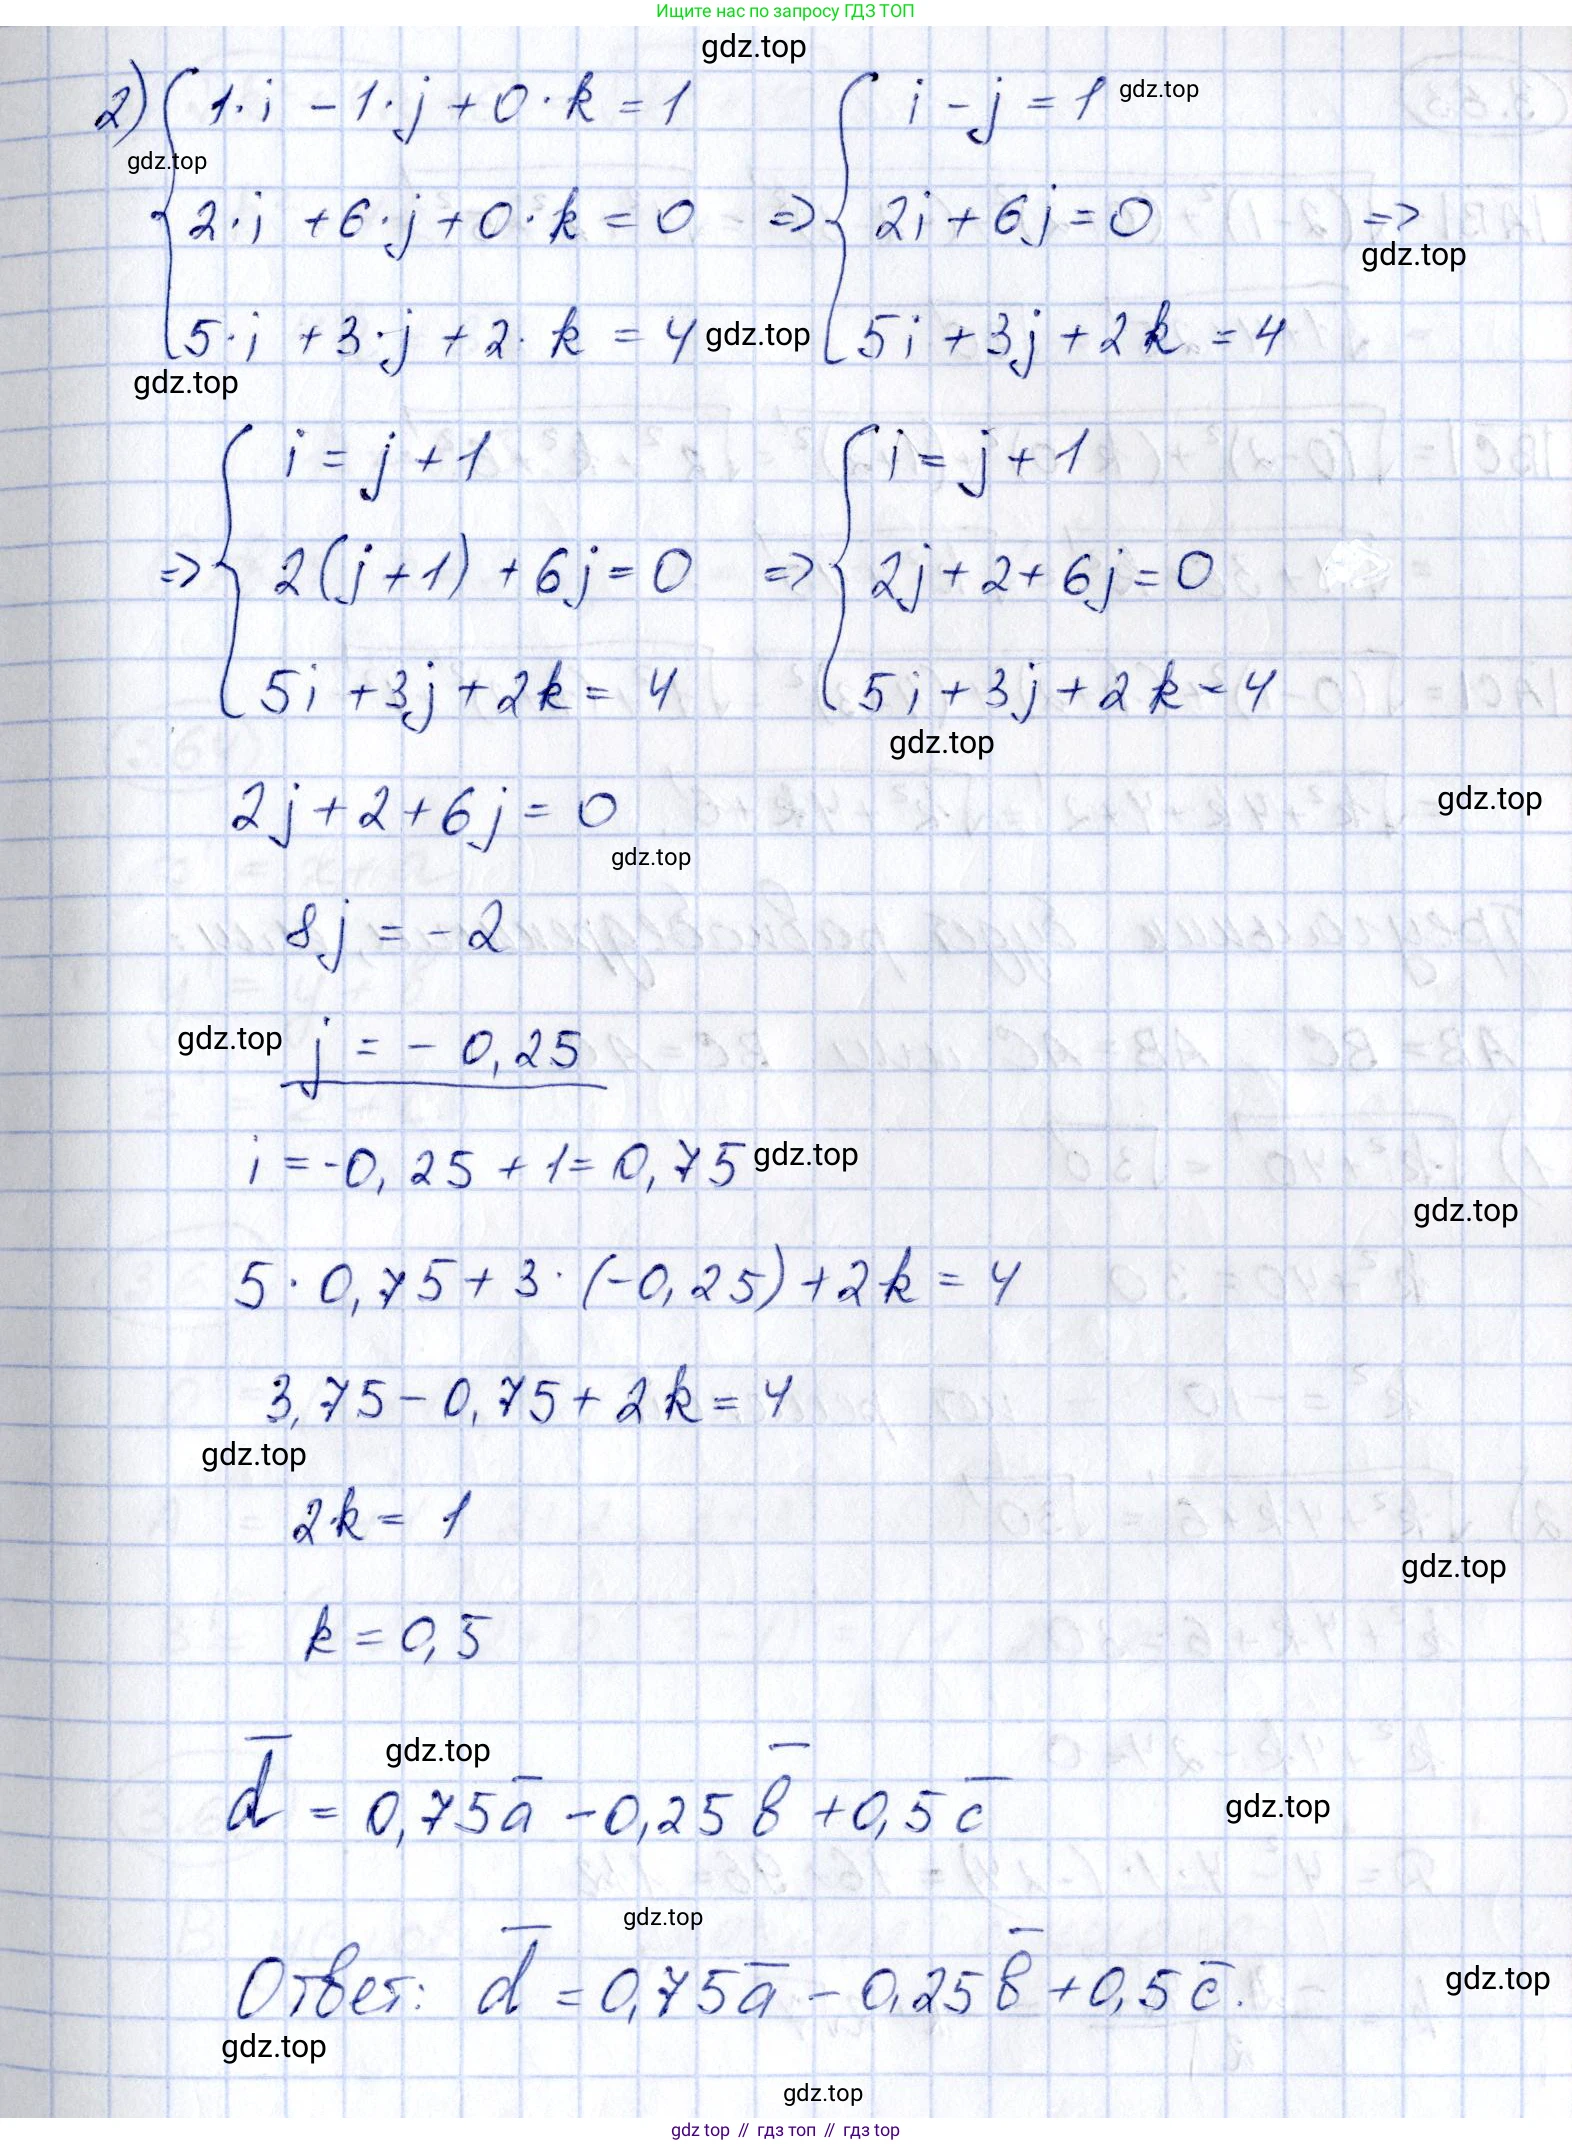 Ищите нас по запросу ГДЗ ТОП
gdz.top
2) { 1·i - 1·j + 0·k = 1 { i - j = 1 gdz.top
gdz.top
2·i + 6·j + 0·k = 0 => 2i + 6j = 0 =>
gdz.top
5·i + 3·j + 2·k = 4 gdz.top 5i + 3j + 2k = 4
gdz.top
{ i = j + 1 { i = j + 1
=> 2(j + 1) + 6j = 0 => 2j + 2 + 6j = 0
5i + 3j + 2k = 4 5i + 3j + 2k = 4
gdz.top
2j + 2 + 6j = 0 gdz.top
gdz.top
8j = -2
gdz.top j = - 0,25
i = -0,25 + 1 = 0,75 gdz.top
gdz.top
5 · 0,75 + 3 · (-0,25) + 2k = 4
3,75 - 0,75 + 2k = 4
gdz.top
2k = 1
gdz.top
k = 0,5
gdz.top
d̅ = 0,75a̅ - 0,25b̅ + 0,5c̅ gdz.top
gdz.top
Ответ: d̅ = 0,75a̅ - 0,25b̅ + 0,5c̅. gdz.top
gdz.top
gdz.top
gdz top // гдз топ // гдз top